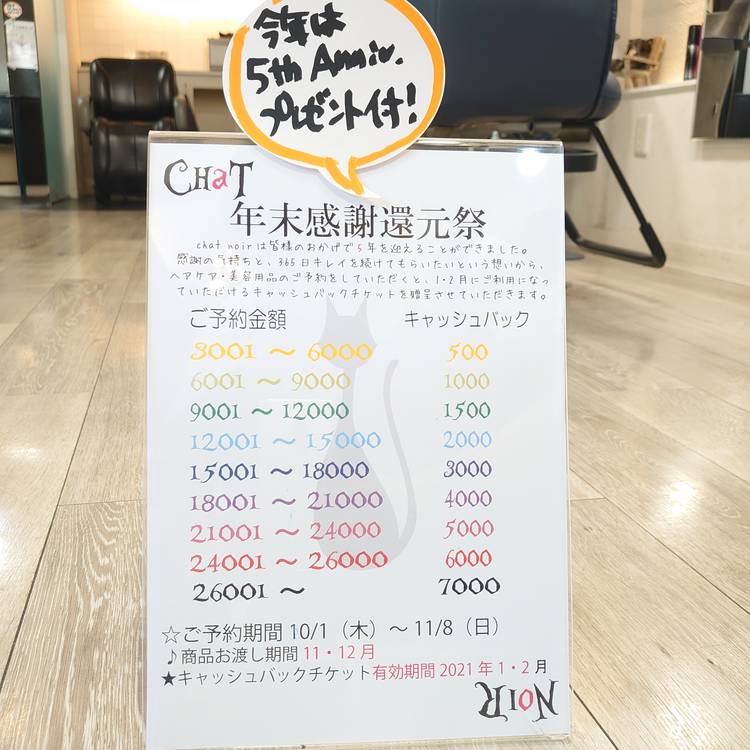 今年は
5th Anniv.
プレゼント付!
CHaT
年末感謝還元祭
chat noirは皆様のおかげで5年を迎えることができました。
感謝の気持ちと、365日キレイを続けてもらいたいという想いから、
ヘアケア・美容用品のご予約をしていただくと、1・2月にご利用になっ
ていただけるキャッシュバックチケットを贈呈させていただきます。
ご予約金額 キャッシュバック
3001 〜 6000 500
6001 〜 9000 1000
9001 〜 12000 1500
12001 〜 15000 2000
15001 〜 18000 3000
18001 〜 21000 4000
21001 〜 24000 5000
24001 〜 26000 6000
26001 〜 7000
☆ご予約期間 10/1（木）〜 11/8（日）
♪商品お渡し期間 11・12月
★キャッシュバックチケット有効期間 2021 年 1・2 月
NOIR